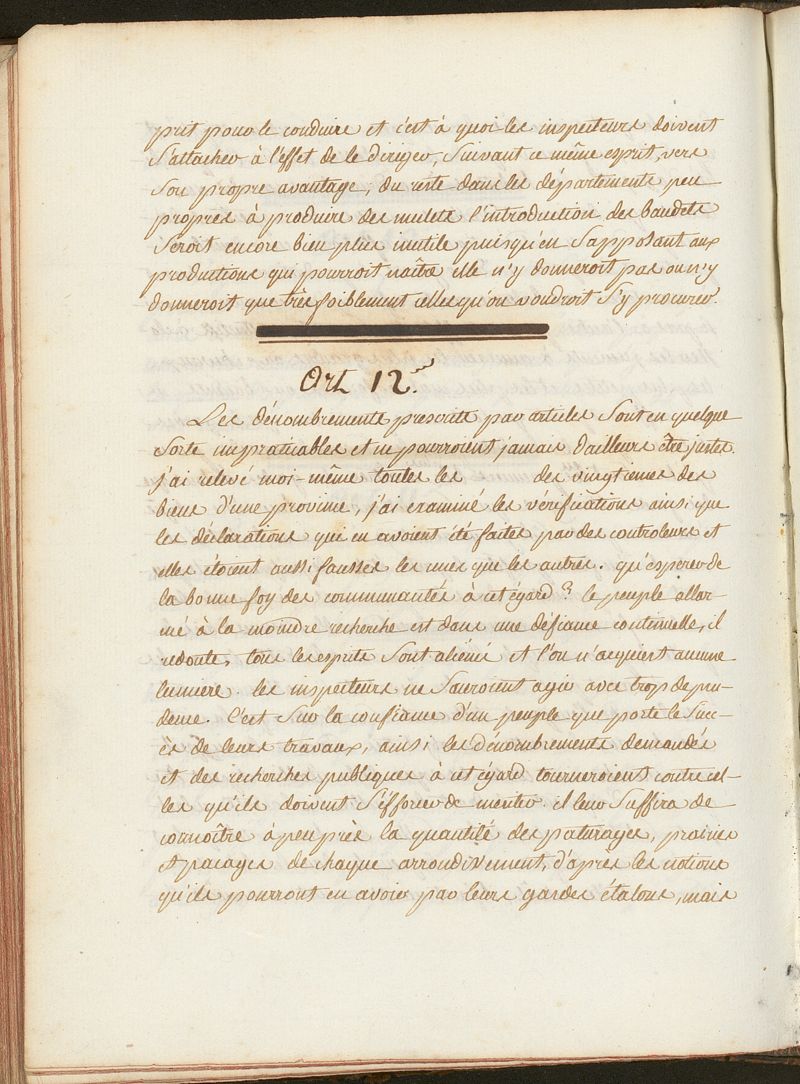 prit pour le conduire et c'est à quoi les inspecteurs doivent
s'attacher à l'effet de le diriger, suivant ce même esprit, vers
son propre avantage, du reste dans les départements peu
propres à produire des mulets l'introduction des baudets
seroit encore bien plus inutile puisqu'en s'apposant aux
productions qui pourroit naître elle n'y donneroit pas ou n'y
donneroit que très foiblement celles qu'on voudroit s'y procurer.
Art 12.
Les dénombrements prescrits par articles sont en quelque
sorte impraticables et ne pourroient jamais dailleurs être justes.
j'ai relevé moi-même toutes les des vingtiemes des
biens d'une province, j'ai examiné les vérifications ainsi que
les déclarations qui en avoient été faites par des controleurs et
elles étoient aussi fausses les unes que les autres. qu'esperer de
la bonne foy des communautés à cet égard ? le peuple allar-
mé à la moindre recherche est dans une défiance continuelle, il
redoute, tous les esprits sont aliénés et l'on n'acquiert aucune
lumiere. les inspecteurs ne sauroient agir avec trop de pru-
dence. C'est sur la confiance d'un peuple que porte le suc-
cès de leurs travaux, ainsi les dénombrements demandés
et des recherches publiques à cet égard tourneroient contre cel-
les qu'ils doivent s'efforcer de meriter. il leur suffira de
connoître à peu près la quantité des paturages, prairies
et pacages de chaque arrondissement, d'après les notions
qu'ils pourront en avoir par leurs gardes étalons, mais